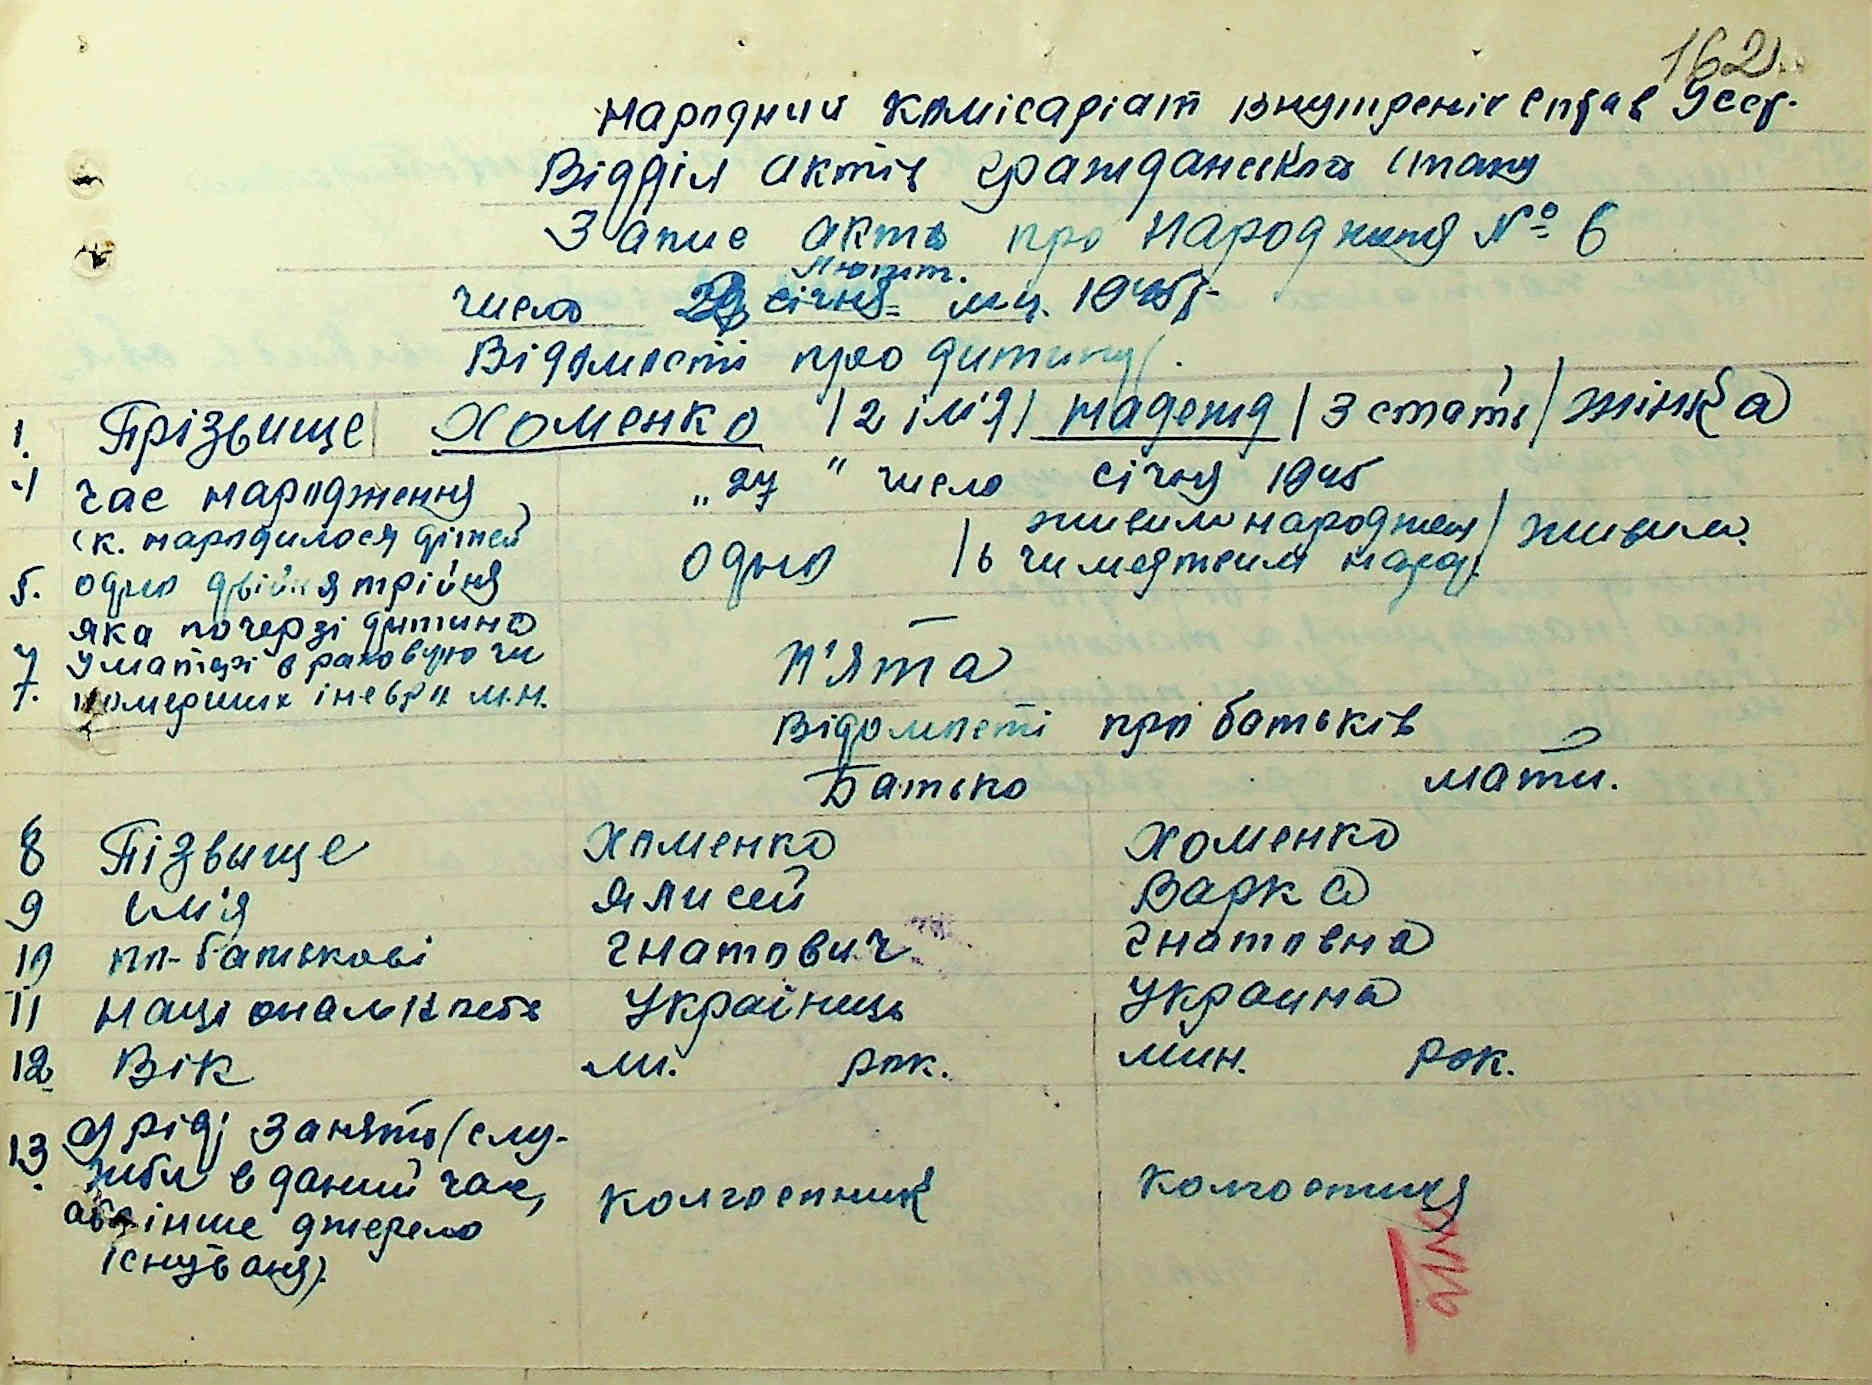 162
Народний комісаріат внутреніх справ Усср.
Відділ актів гражданського стану
Запис акта про народженя № 6
Лютт.
число січня мц. 1945р.
Відомості про дитину.
1. Прізвище Хоменко /2 імя/ Надежд /3 стать/ жінка
4 час народження „27" число січня 1945
(к. народилося дітей живим народжен/ живим.
5. одно двійня трійня одно /6 чи мертвим народ.
яка по черзі дитина
7. у матері враховуючи п'ята
померших і невр м.н.
Відомості про батьків
Батько мати.
8 Пізвище Хоменко Хоменко
9 імя Ялисей Варка
10 по-батькові Гнатович Гнатовна
11 національність Українць Украина
12 Вік ми. рок. мин. рок.
13. Урід занять (слу-
жбы в даний час, колгоспник колгоспиця
або інше джерело
існуваня).